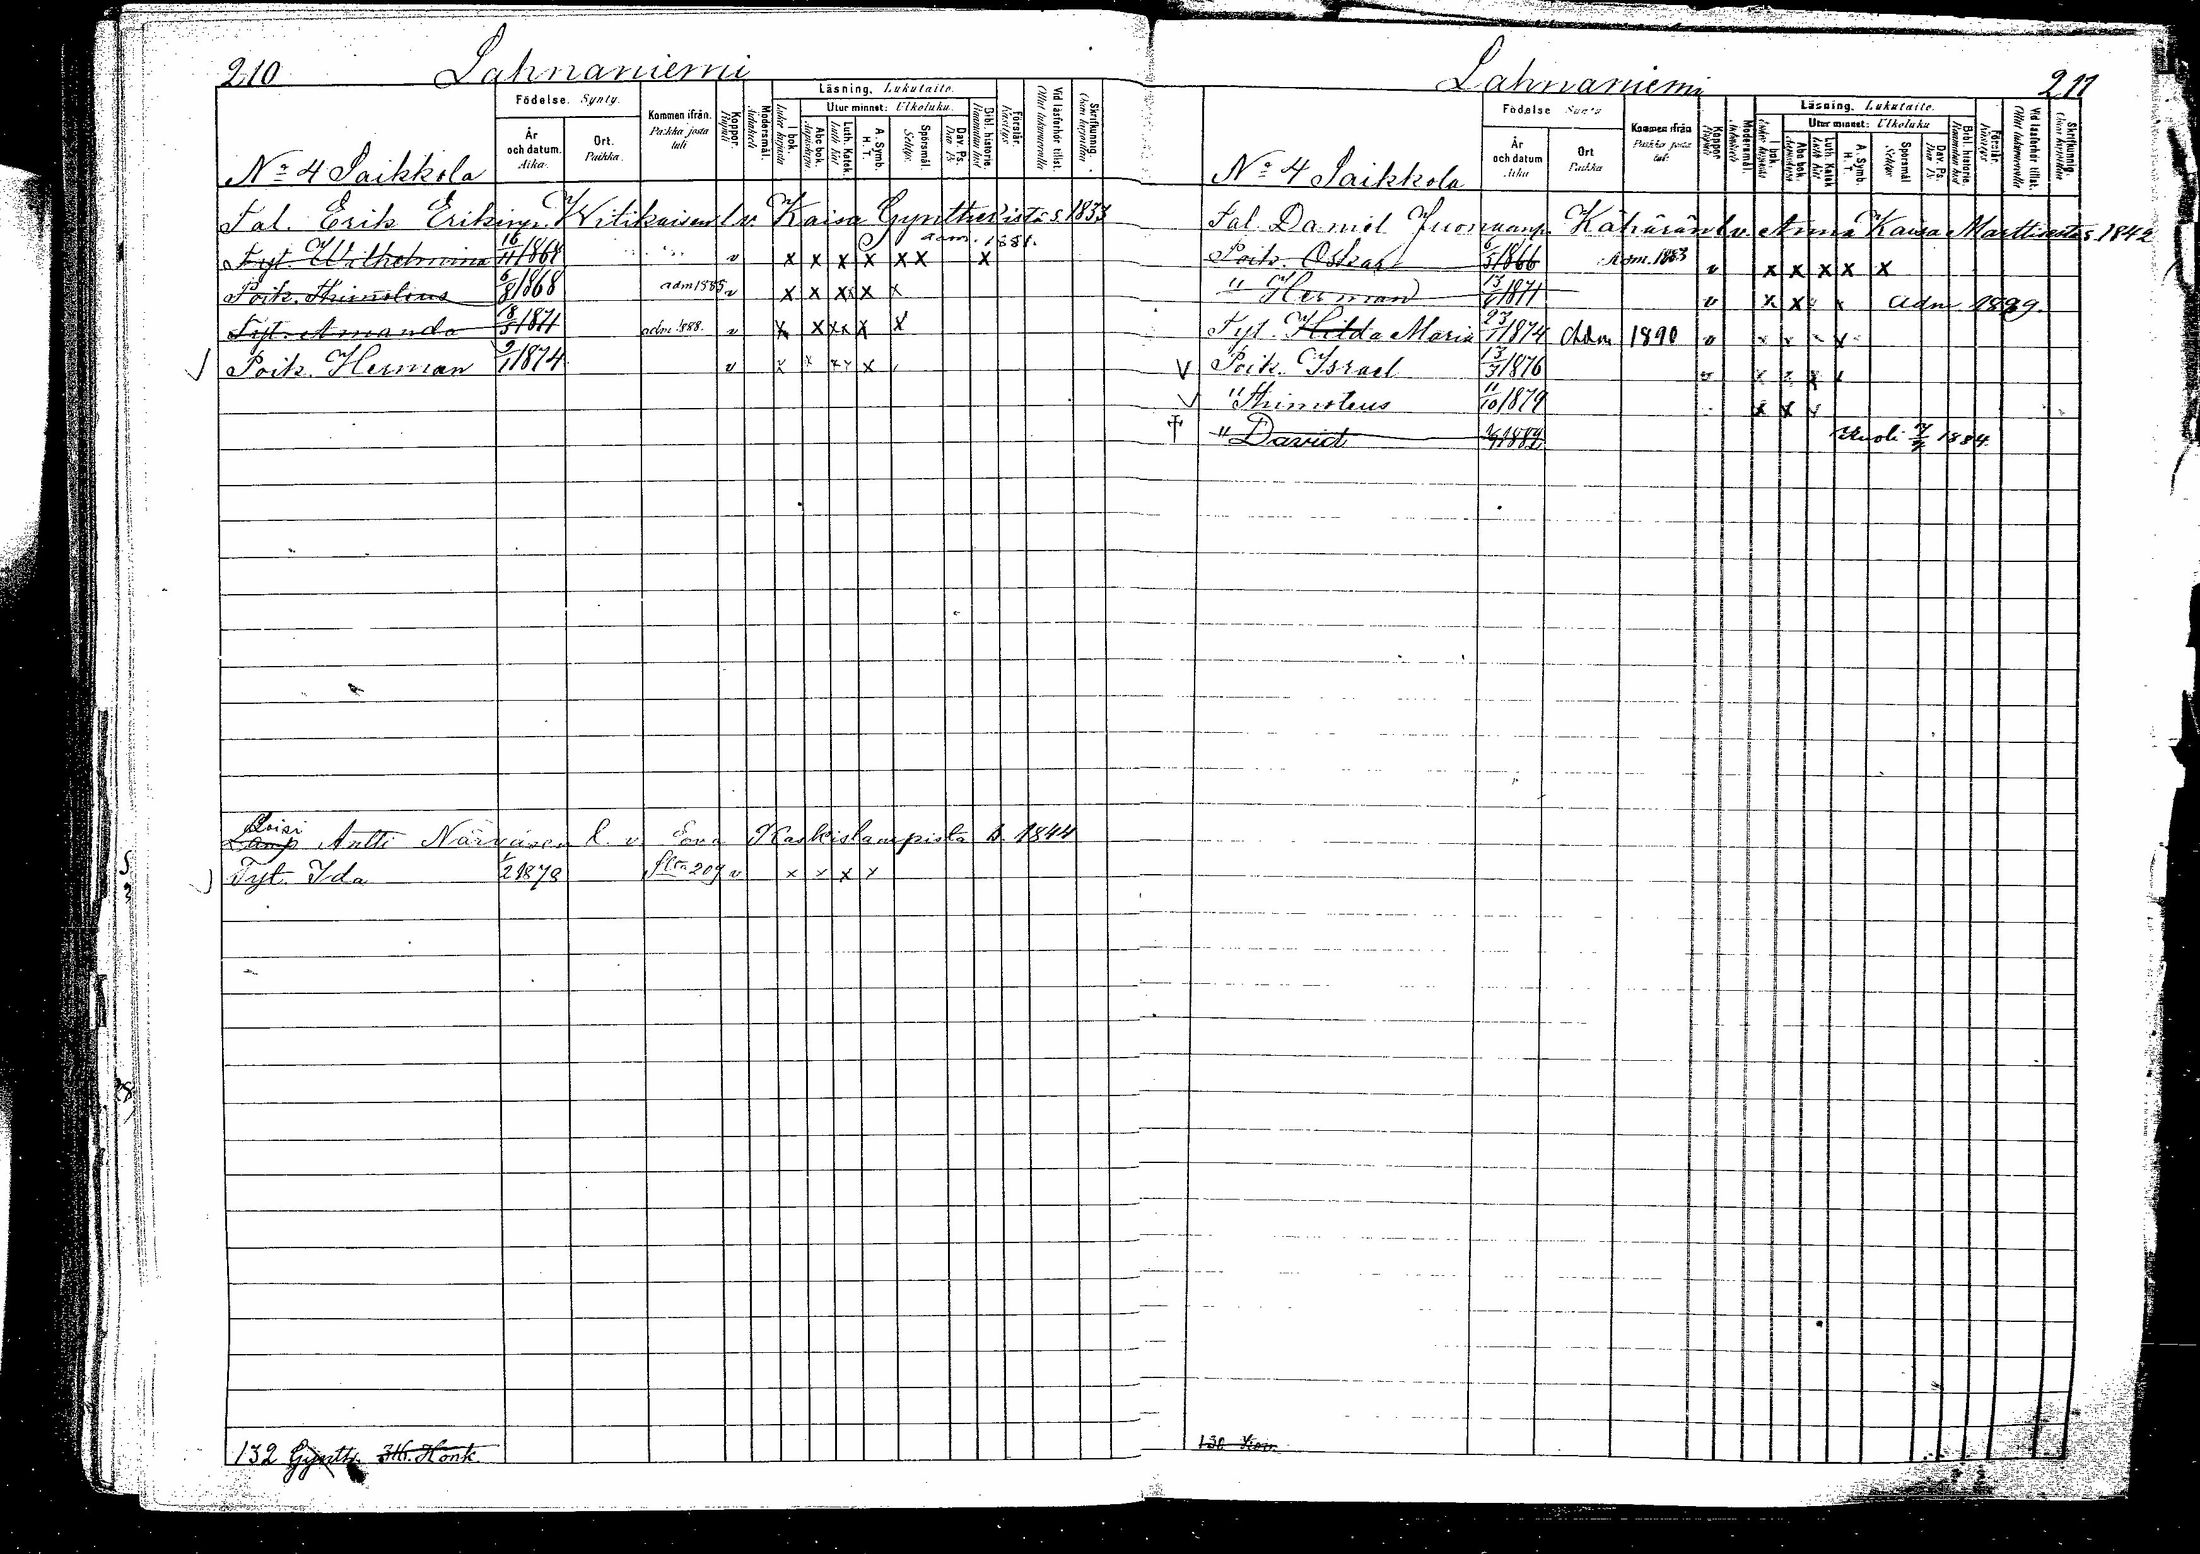 210 Lahnaniemi
Födelse. Synty.
År och datum. Aika.
Ort. Paikka.
Kommen ifrån. Paikka josta tuli
Koppor. Rupuli
Modersmål.
Läsning. Lukutaito.
I bok.
Utur minnet: Ulkoluku.
Abc bok.
Luth. Katek.
A. Symb. H. T.
Spörsmål.
Dav. Ps.
Bibl. historie.
Förstår. Käsitys
Vid läsförhör tillst.
Skrifkunnig.
No 4 Saikkola
Tal. Erik Erikinp. Witikaisen l. v. Kaisa Gyntheristä s. 1833
Tyt. Wilhelmina 16/11 1861 v x x x x x x x adm. 1881.
Poik. Thimoteus 6/8 1868 adm 1885 v x x x x x
Tyt. Amanda 18/5 1871 adm 1888. v x x x x x x
V Poik. Herman 2/1 1874 v x x x x x
Loisi
Lamp Antti Närväsen l. v. Eova Kaskislampista s. 1844
V Tyt. Ida 1/2 1878 flta 209 v x x x x
132 Gynth. 316. Honk.
Lahnaniemi 211
Födelse
År och datum Aika
Ort Paikka
Kommen ifrån Paikka josta tuli
Koppor
Modersmål.
Läsning. Lukutaito.
I bok.
Utur minnet: Ulkoluku
Abc bok.
Luth. Katek
A. Symb. H. T.
Spörsmål
Dav. Ps.
Bibl. historie.
Förstår.
Vid läsförhör tillst.
Skrifkunnig.
No 4 Saikkola
Tal. Daniel Juonaanp. Kähärän l. v. Anna Kaisa Marttisesta s. 1842
Poik. Oskar 6/5 1866 Adm. 1883 v x x x x x
" Herman 13/6 1871 v x x x Adm. 1889.
Tyt. Hilda Maria 23/1 1874 Adm 1890 v x x x x
V Poik. Israel 13/3 1876 v x x x x
V " Thimoteus 11/10 1879 x x x
† " David 1882 Kuoli 1884
130